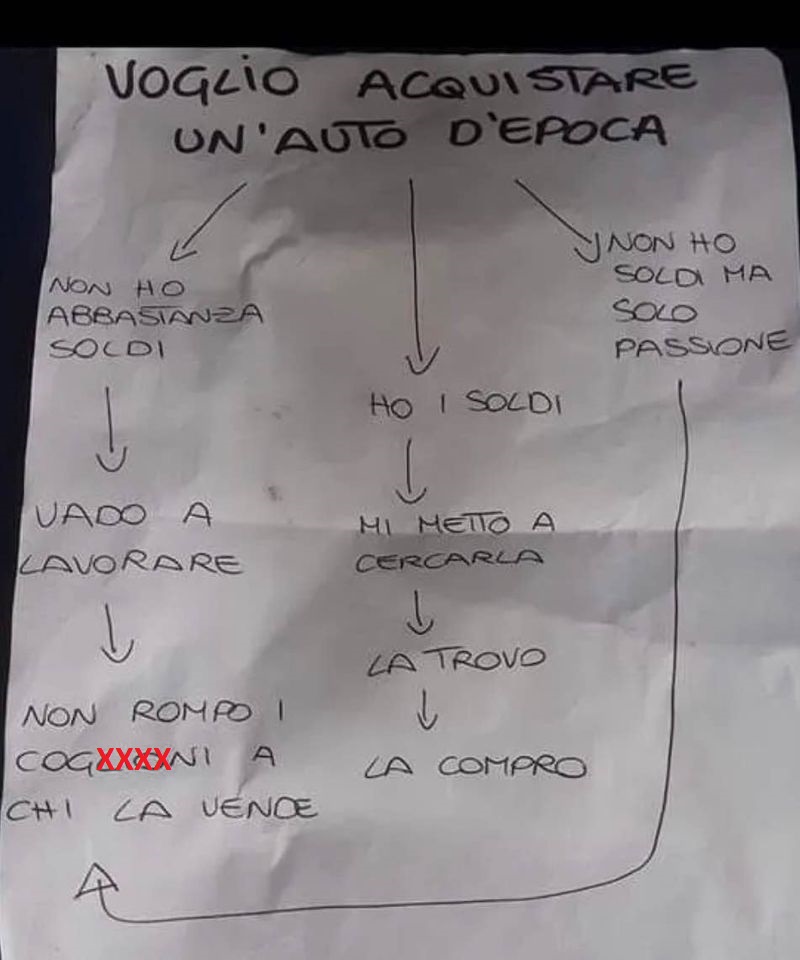 VOGLIO ACQUISTARE
UN'AUTO D'EPOCA
NON HO
ABBASTANZA
SOLDI
VADO A
LAVORARE
NON ROMPO I
COGXXXXNI A
CHI LA VENDE
HO I SOLDI
MI METTO A
CERCARLA
LA TROVO
LA COMPRO
NON HO
SOLDI MA
SOLO
PASSIONE